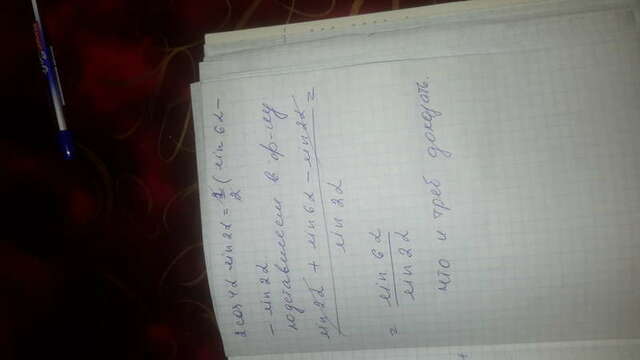 2cos4α sin2α = 2/2 (sin6α -
- sin2α
подставляем в ф-лу
sin2α + sin6α - sin2α / sin2α =
= sin6α / sin2α
что и треб доказать.